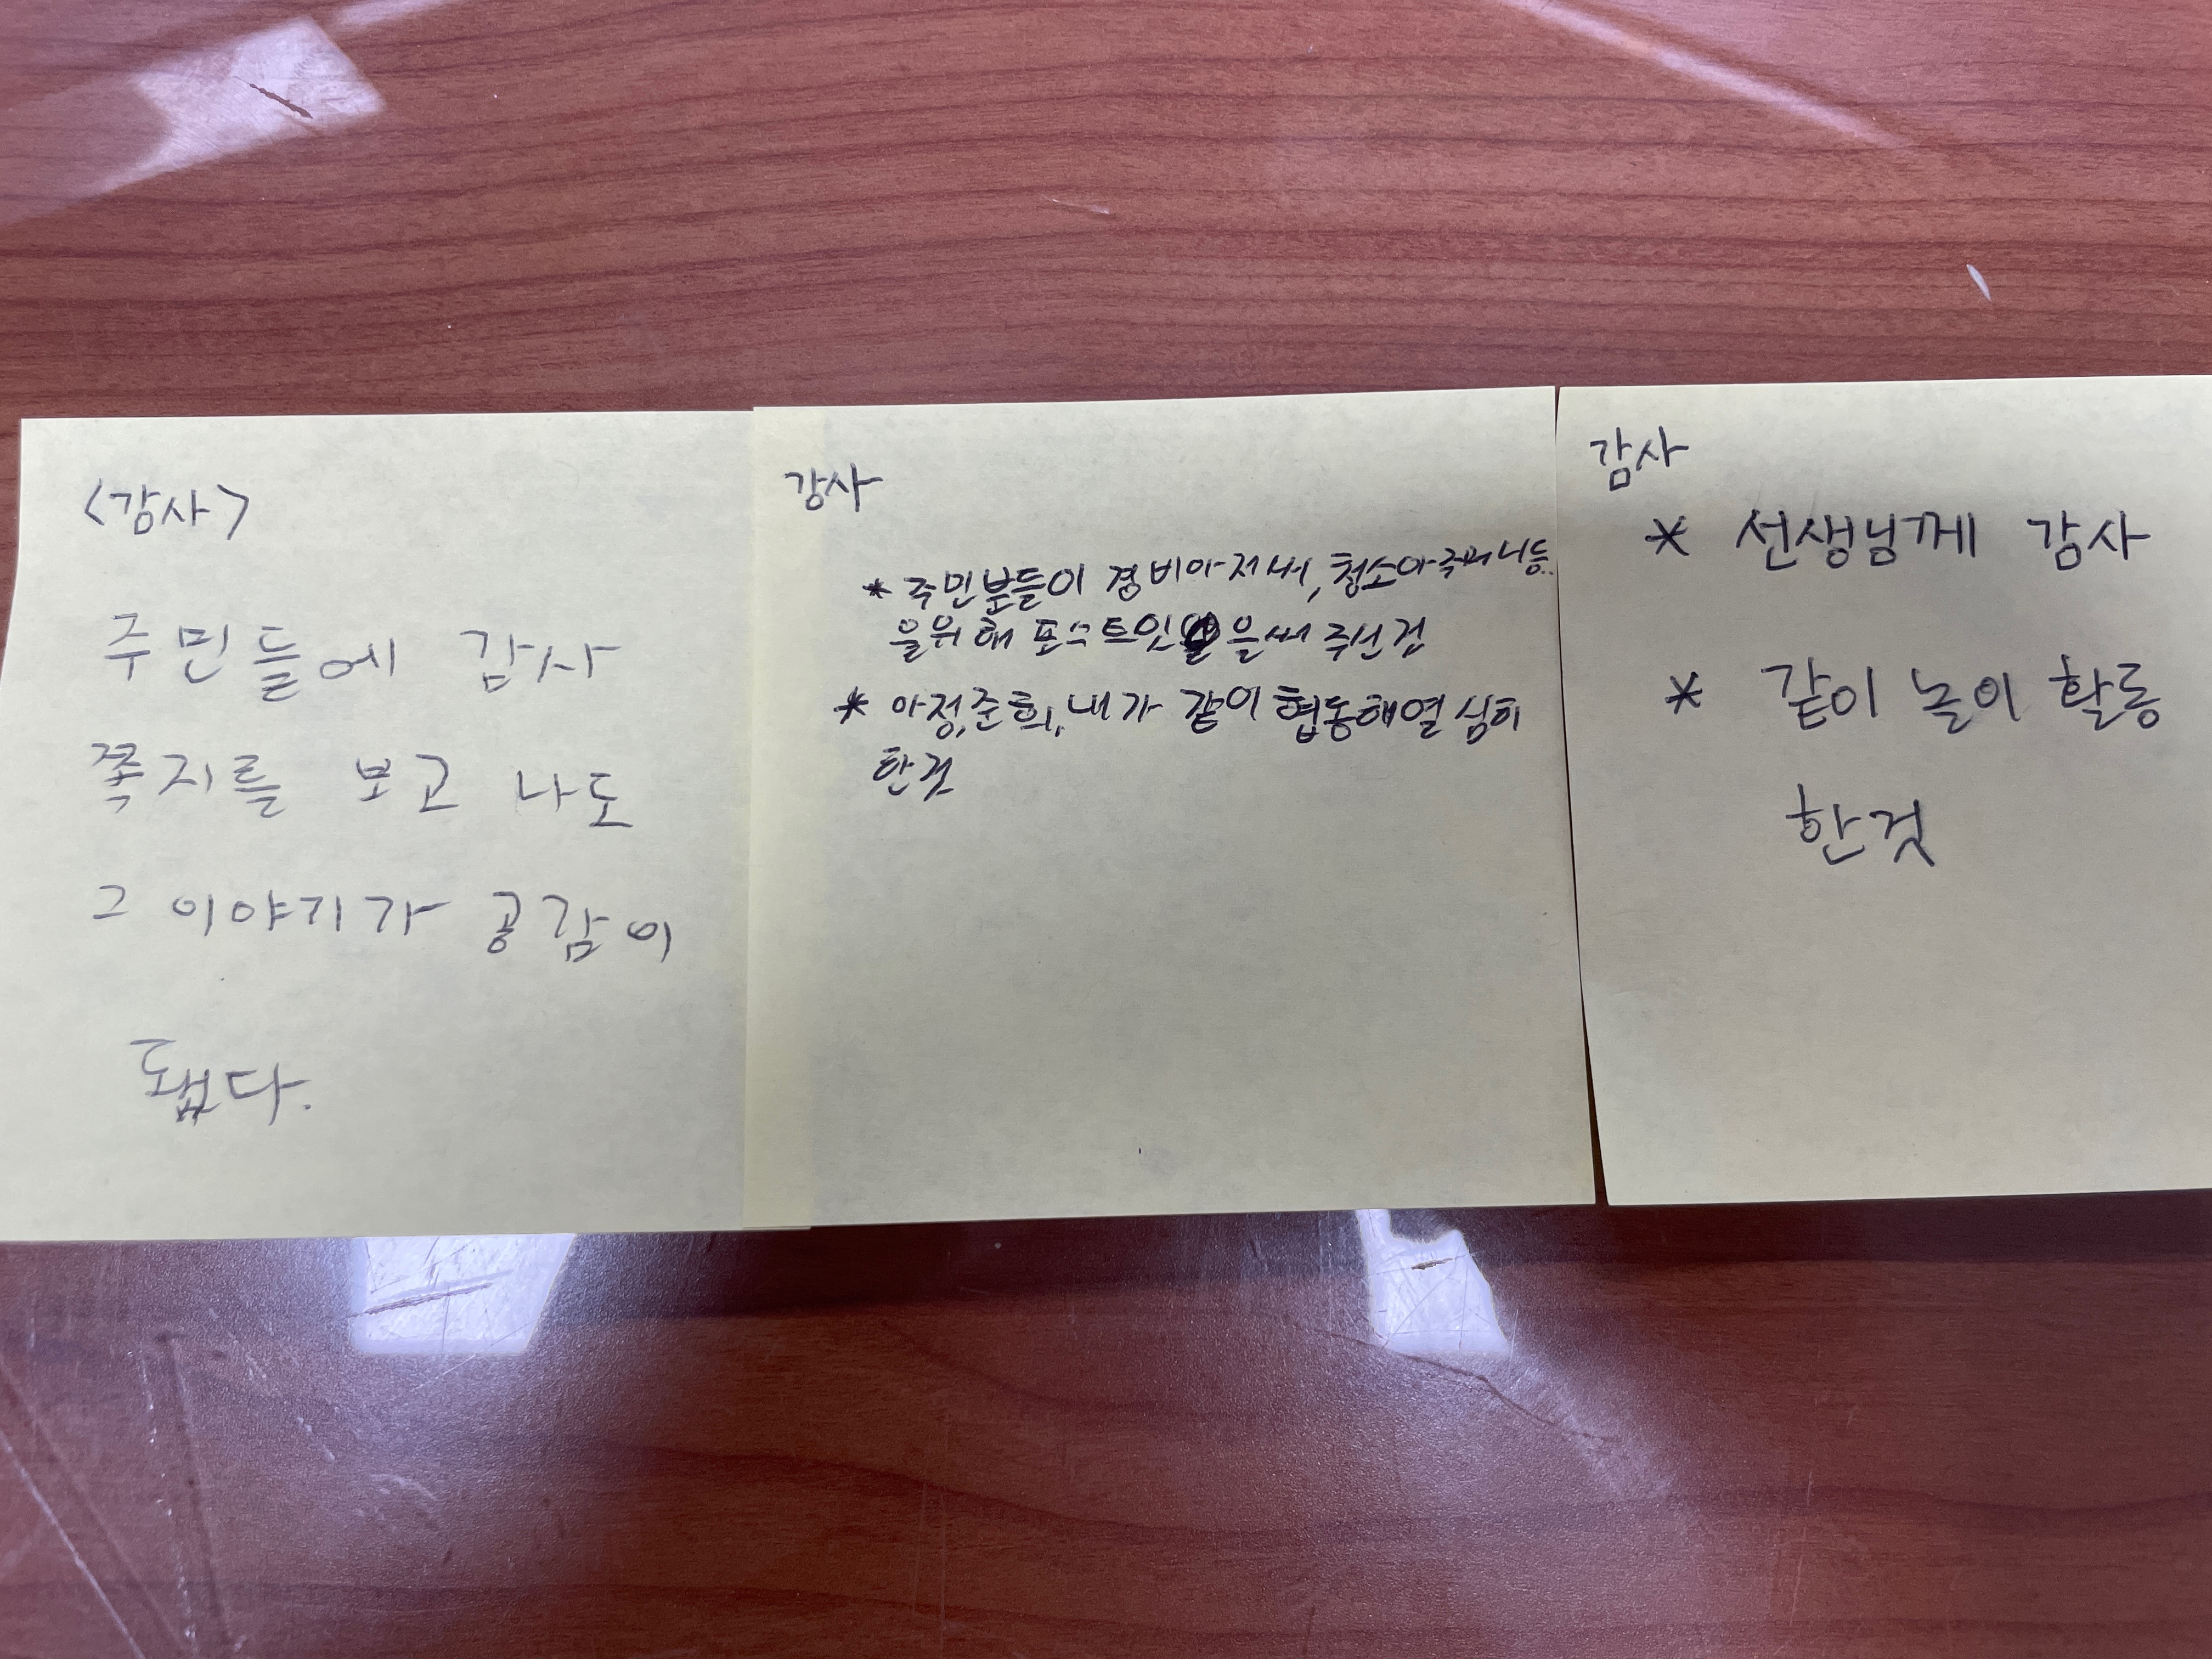 <감사>
주민들에 감사
쪽지를 보고 나도
그 이야기가 공감이
됐다.
감사
* 주민분들이 경비아저씨, 청소아주머니등
을위해 포스트잇을써 주신것
* 아정,준희,내가 같이 협동해열심히
한것
감사
* 선생님께 감사
* 같이 놀이 활동
한것